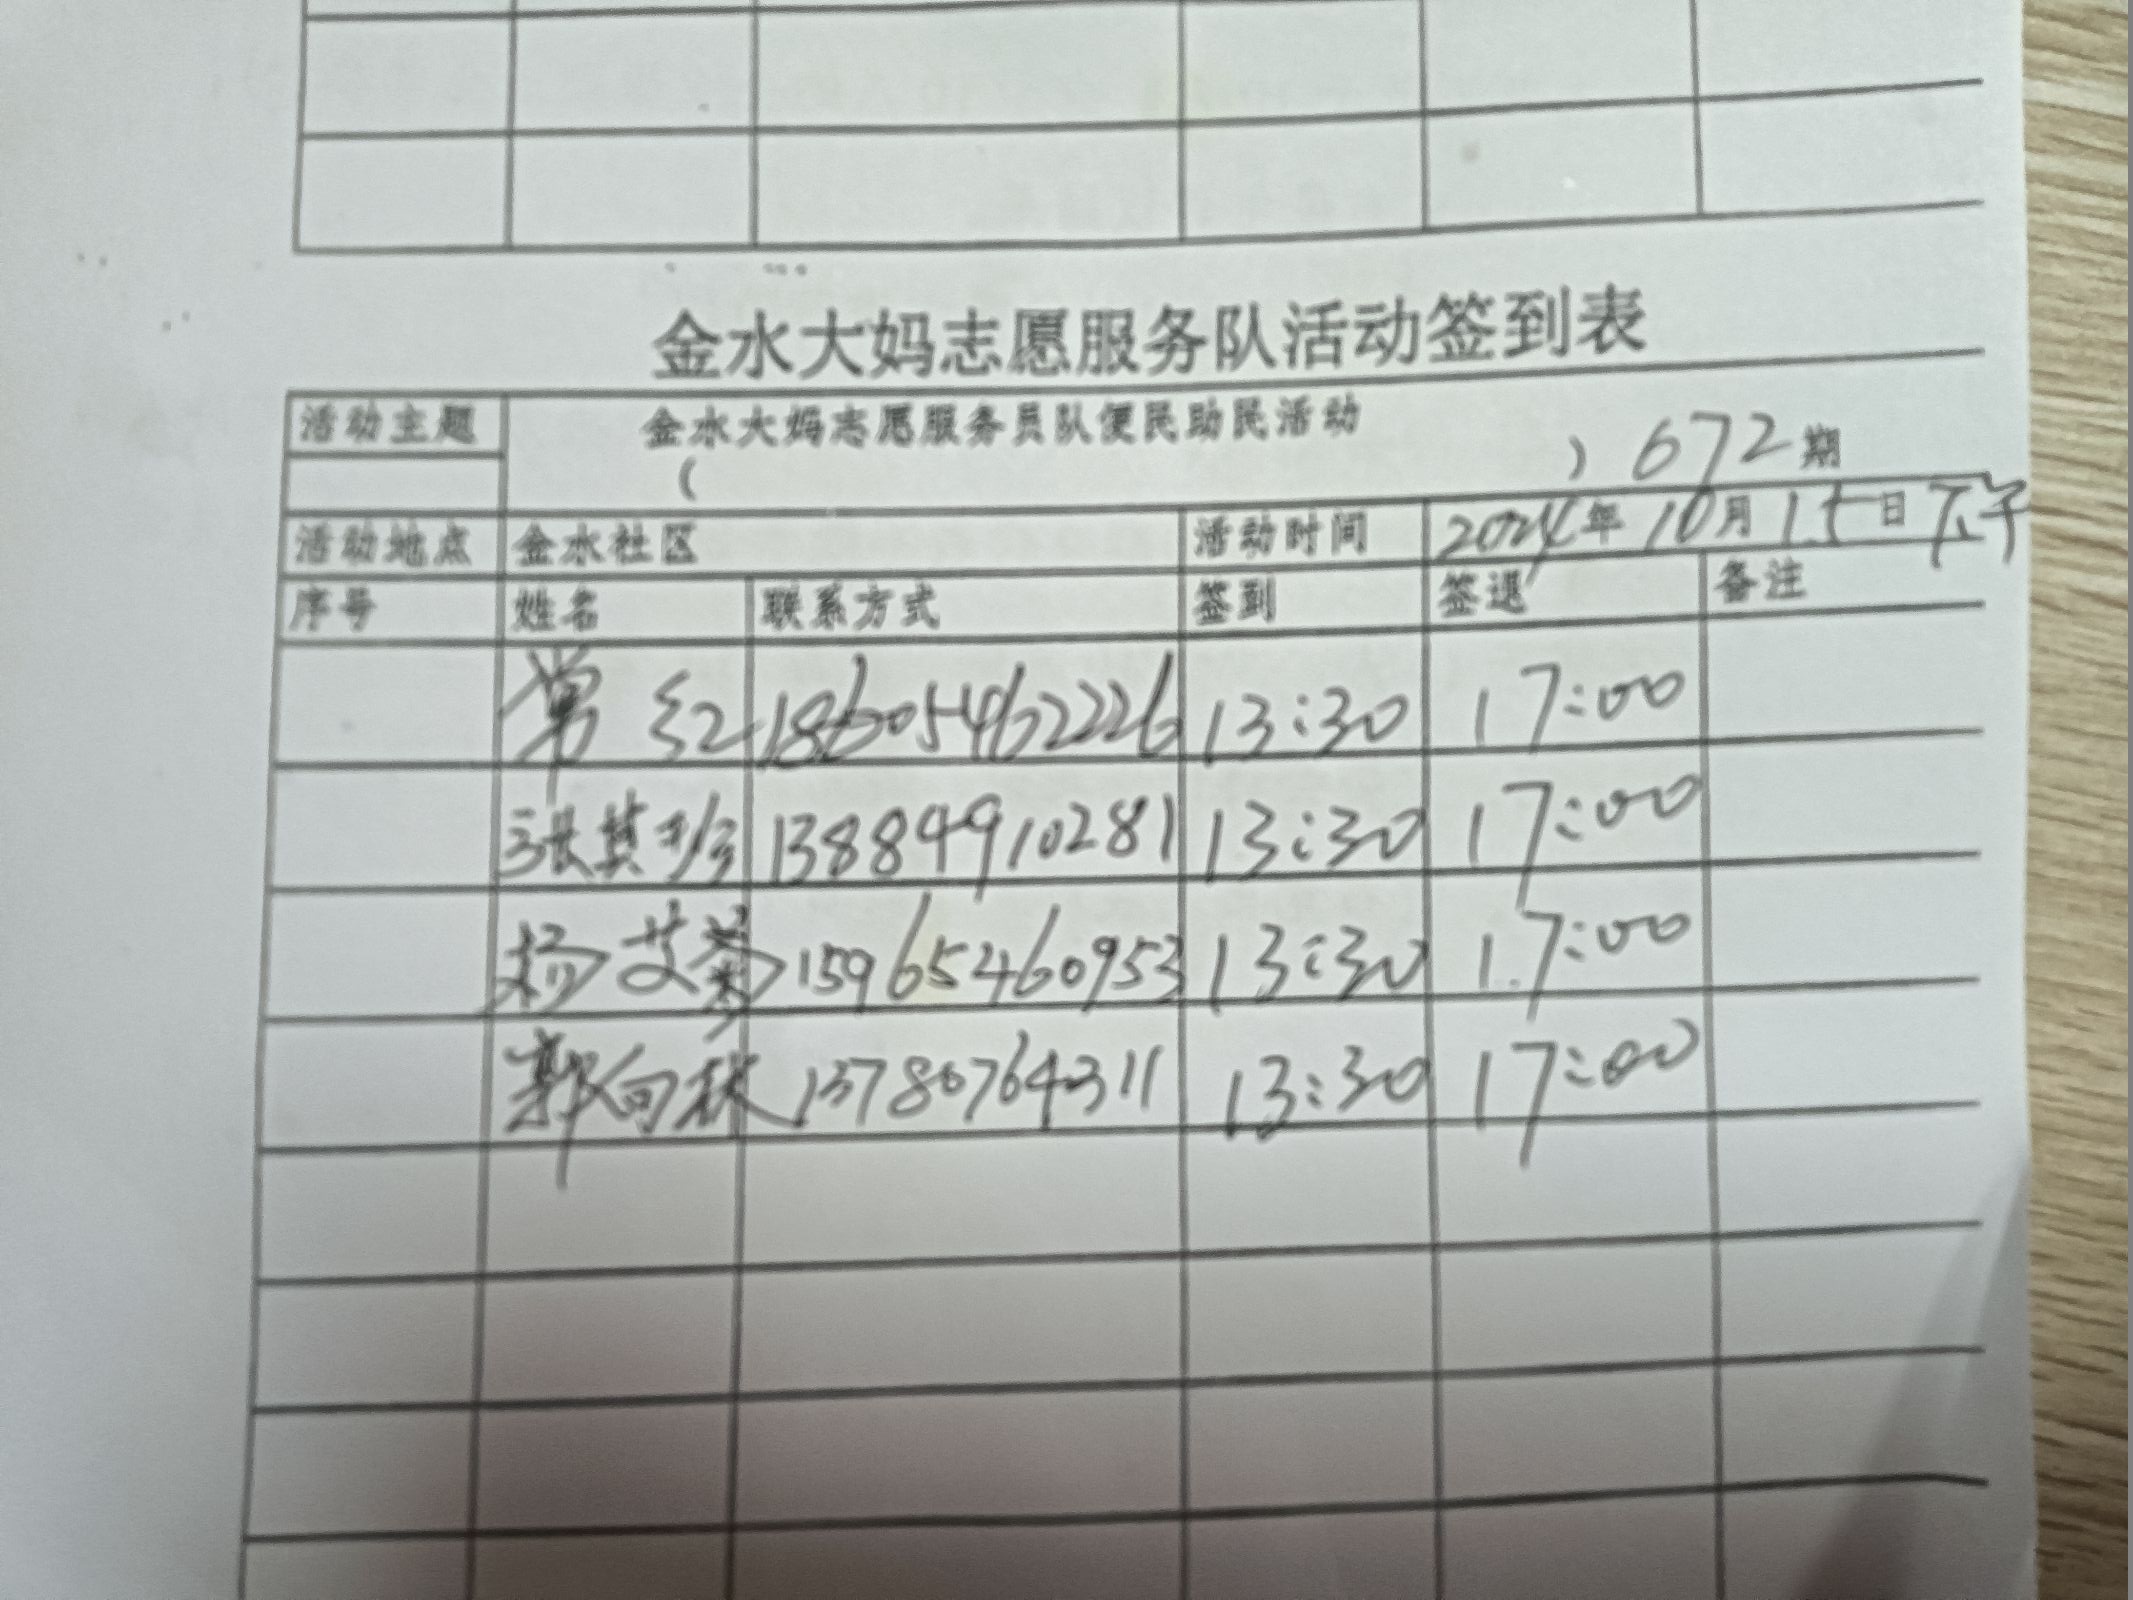 金水大妈志愿服务队活动签到表
活动主题 金水大妈志愿服务员队便民助民活动
( ) 672期
活动地点 金水社区 活动时间 2024年10月15日下午
序号 姓名 联系方式 签到 签退 备注
红 18605462226 13:30 17:00
张其珍 13884910281 13:30 17:00
杨艾琴 15965460953 13:30 17:00
郭向秋 13780764311 13:30 17:00